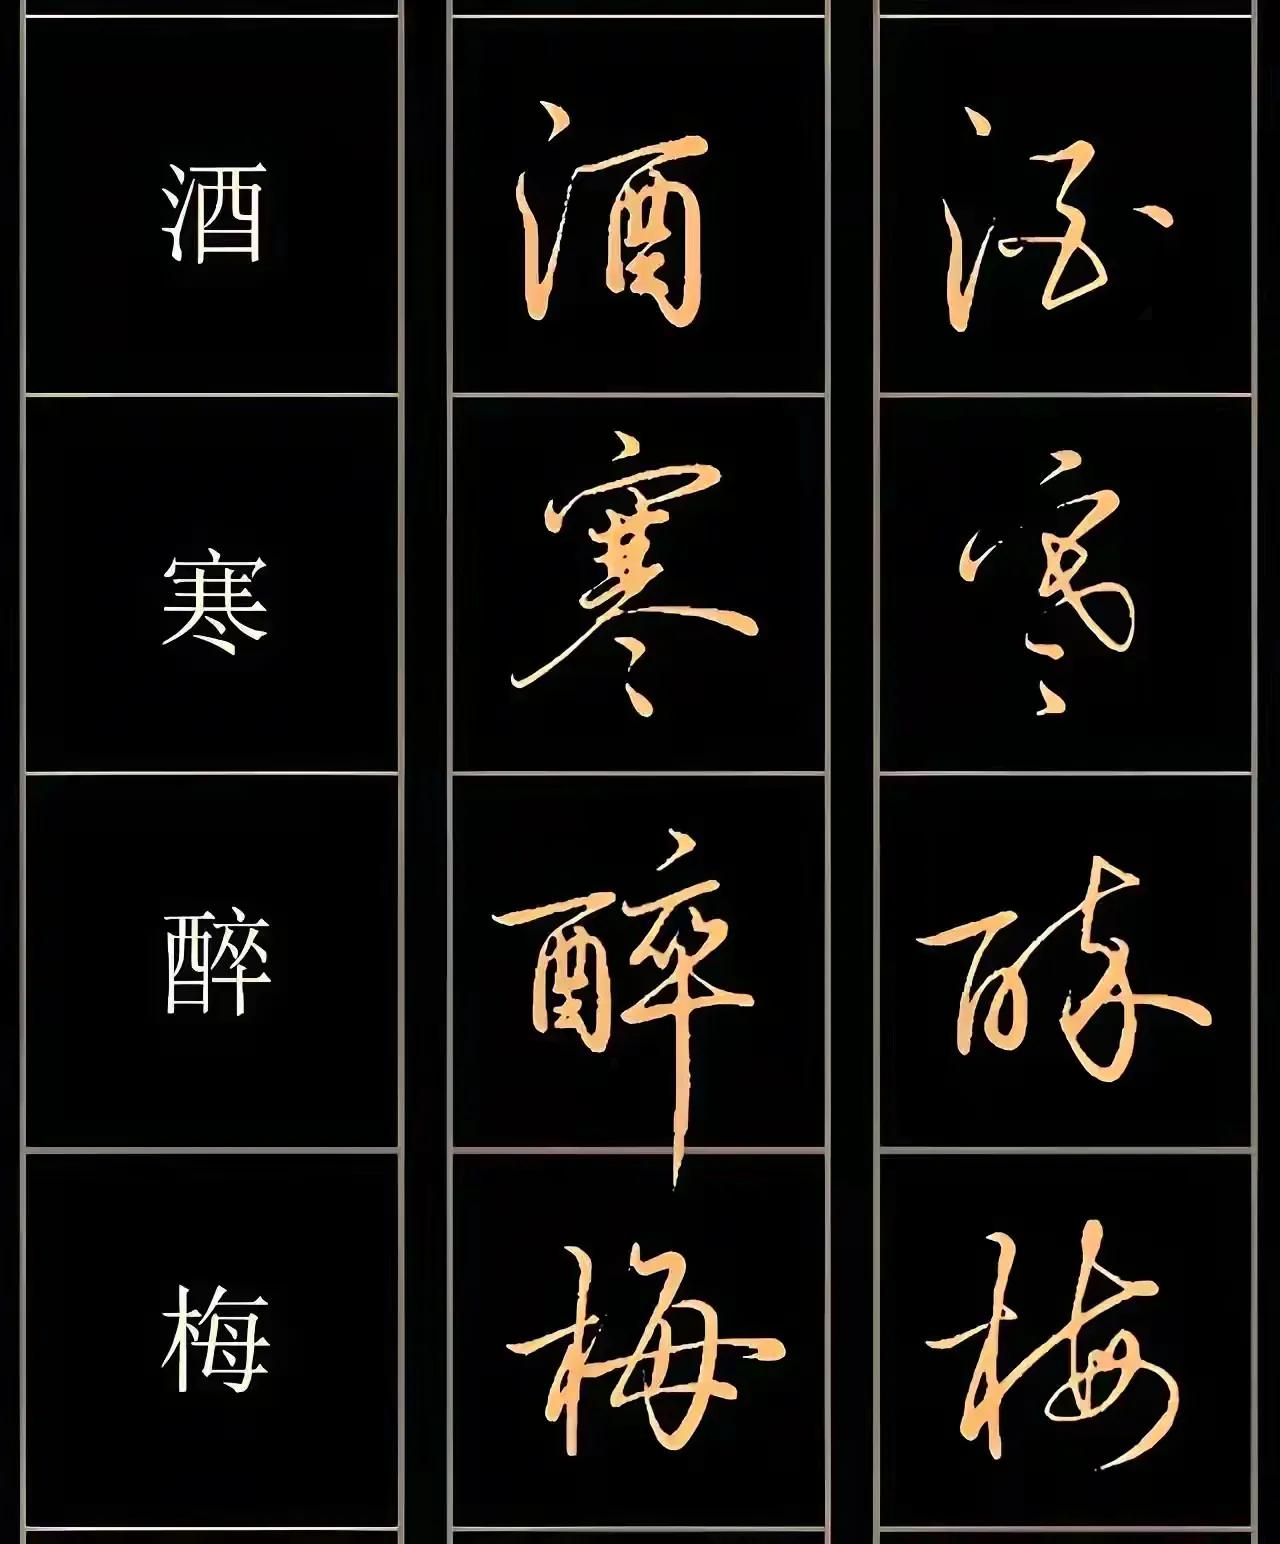 酒 酒 酒
寒 寒 寒
醉 醉 醉
梅 梅 梅